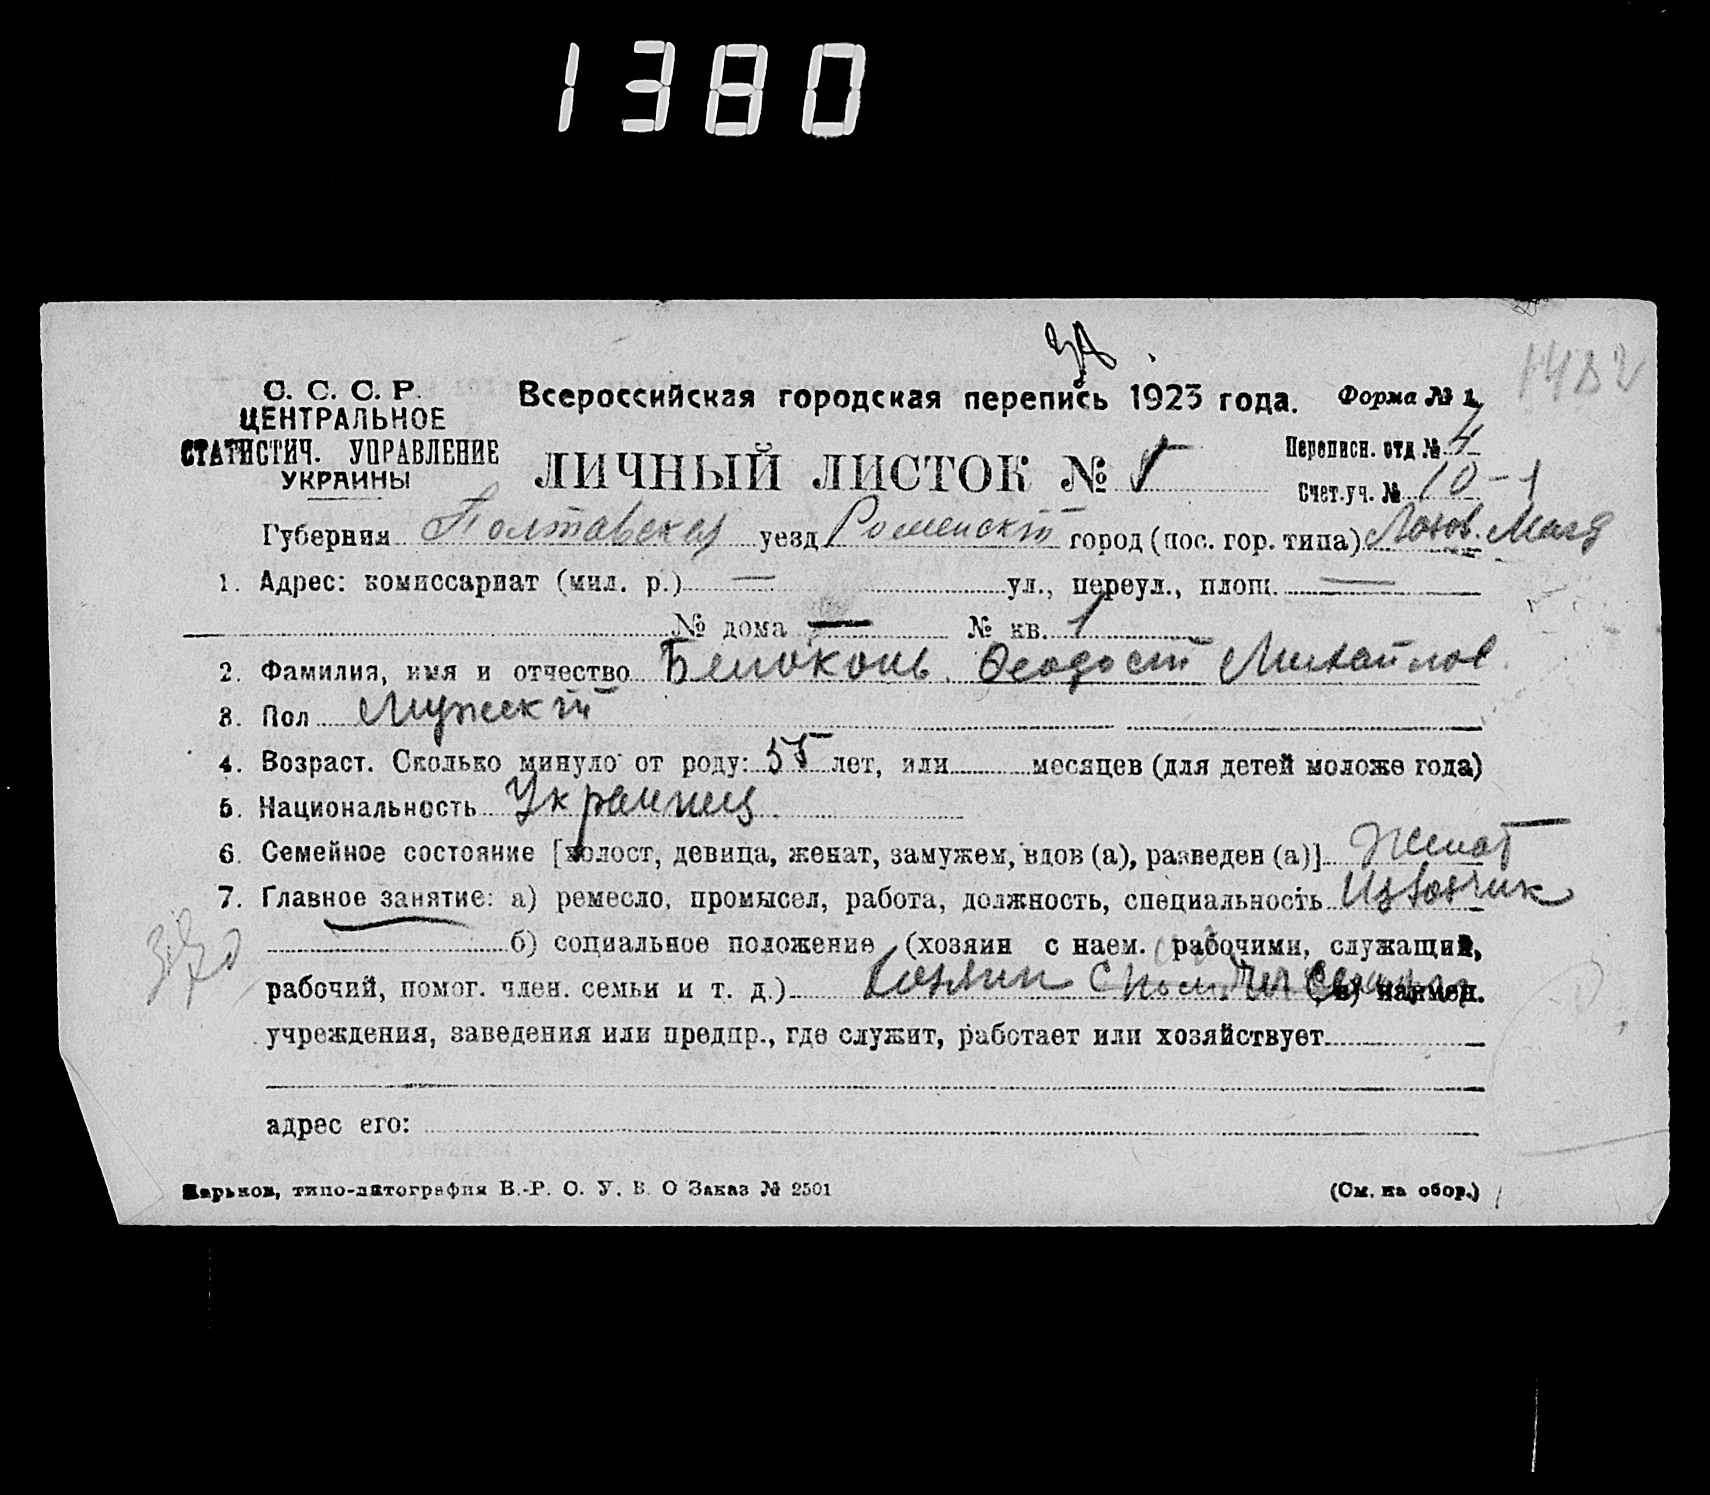 1380
За
1482
С. С. С. Р. Всероссийская городская перепись 1923 года. Форма № 1.
ЦЕНТРАЛЬНОЕ
СТАТИСТИЧ. УПРАВЛЕНИЕ
УКРАИНЫ
Переписн. отд № 4
ЛИЧНЫЙ ЛИСТОК № 5
Счет.уч. № 10-1
Губерния Полтавская уезд Роменскій город (пос. гор. типа)
1. Адрес: комиссариат (мил. р.) — ул., переул., площ. —
№ дома — № кв. 1
2. Фамилия, имя и отчество Белоконь Феодосій Михайлов
3. Пол Мужскій
4. Возраст. Сколько минуло от роду: 55 лет, или месяцев (для детей моложе года)
5. Национальность Украинец
6. Семейное состояние [холост, девица, женат, замужем, вдов (а), разведен (а)] Женат
7. Главное занятие: а) ремесло, промысел, работа, должность, специальность Извозчик
б) социальное положение (хозяин с наем. рабочими, служащий,
рабочий, помог. член. семьи и т. д.) Хозяин с в) наимен.
учреждения, заведения или предпр., где служит, работает или хозяйствует
адрес его:
Харьков, типо-литография В.-Р. О. У. В. О Заказ № 2501 (См. на обор.)